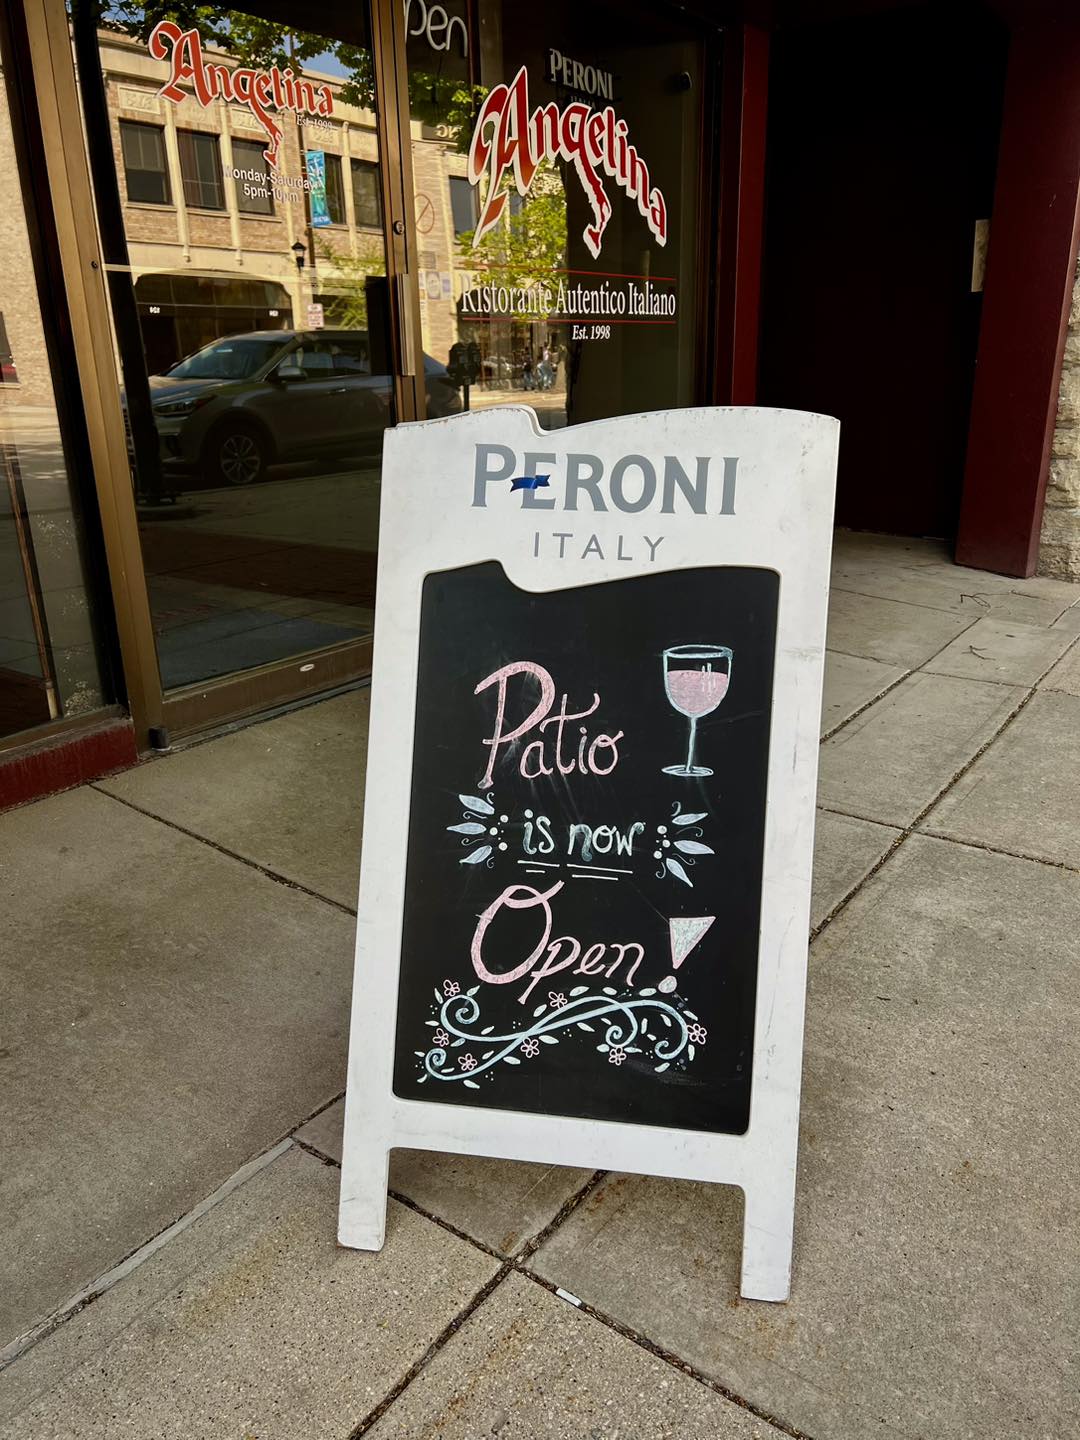 Angelina
Est. 1998
Monday-Saturday
5pm-10pm
pen
PERONI
Angelina
Ristorante Autentico Italiano
Est. 1998
PERONI
ITALY
Patio
is now
Open!